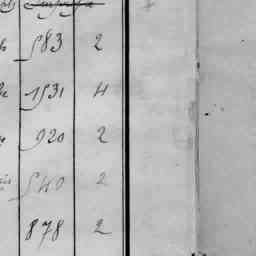 583 2
1531 4
920 2
540 2
878 2